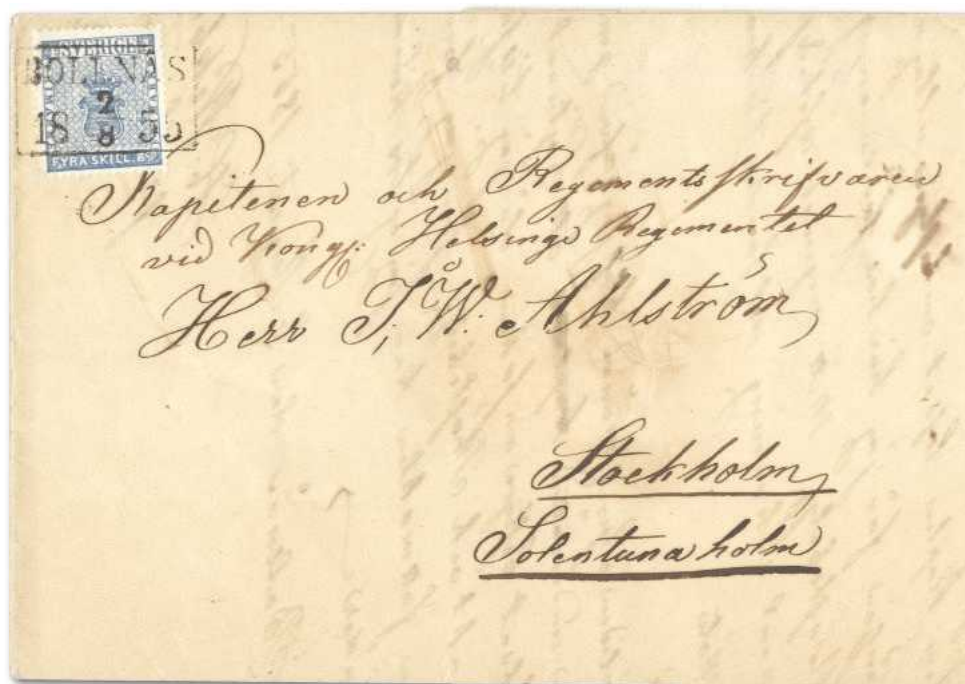 SVERIGE
BOLLNÄS
2
18 8 55
FYRA SKILL. Bco
Kapitenen och Regementsskrifvaren
vid Kongl: Helsinge Regementet
Herr J, W: Ahlström,
Stockholm,
Solentunaholm